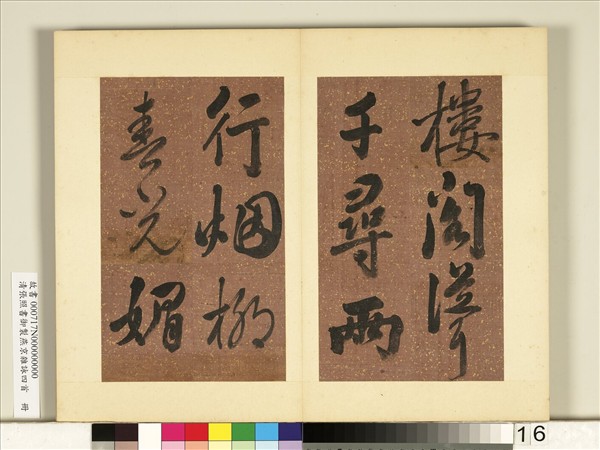 樓閣從聳
千尋兩
行烟柳
春光媚
故書000717N000000000
清張照書御製燕京雜詠四首 冊
16